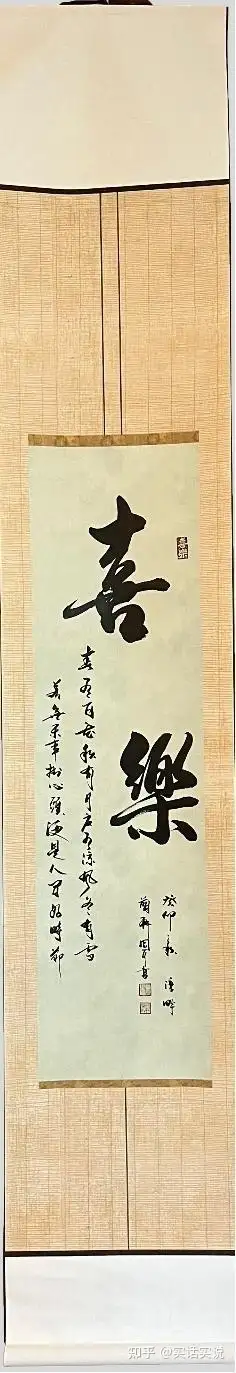 喜
樂
春有百花秋有月夏有涼風冬有雪
若無閑事掛心頭便是人間好時節
癸卯秋
知乎 @实话实说